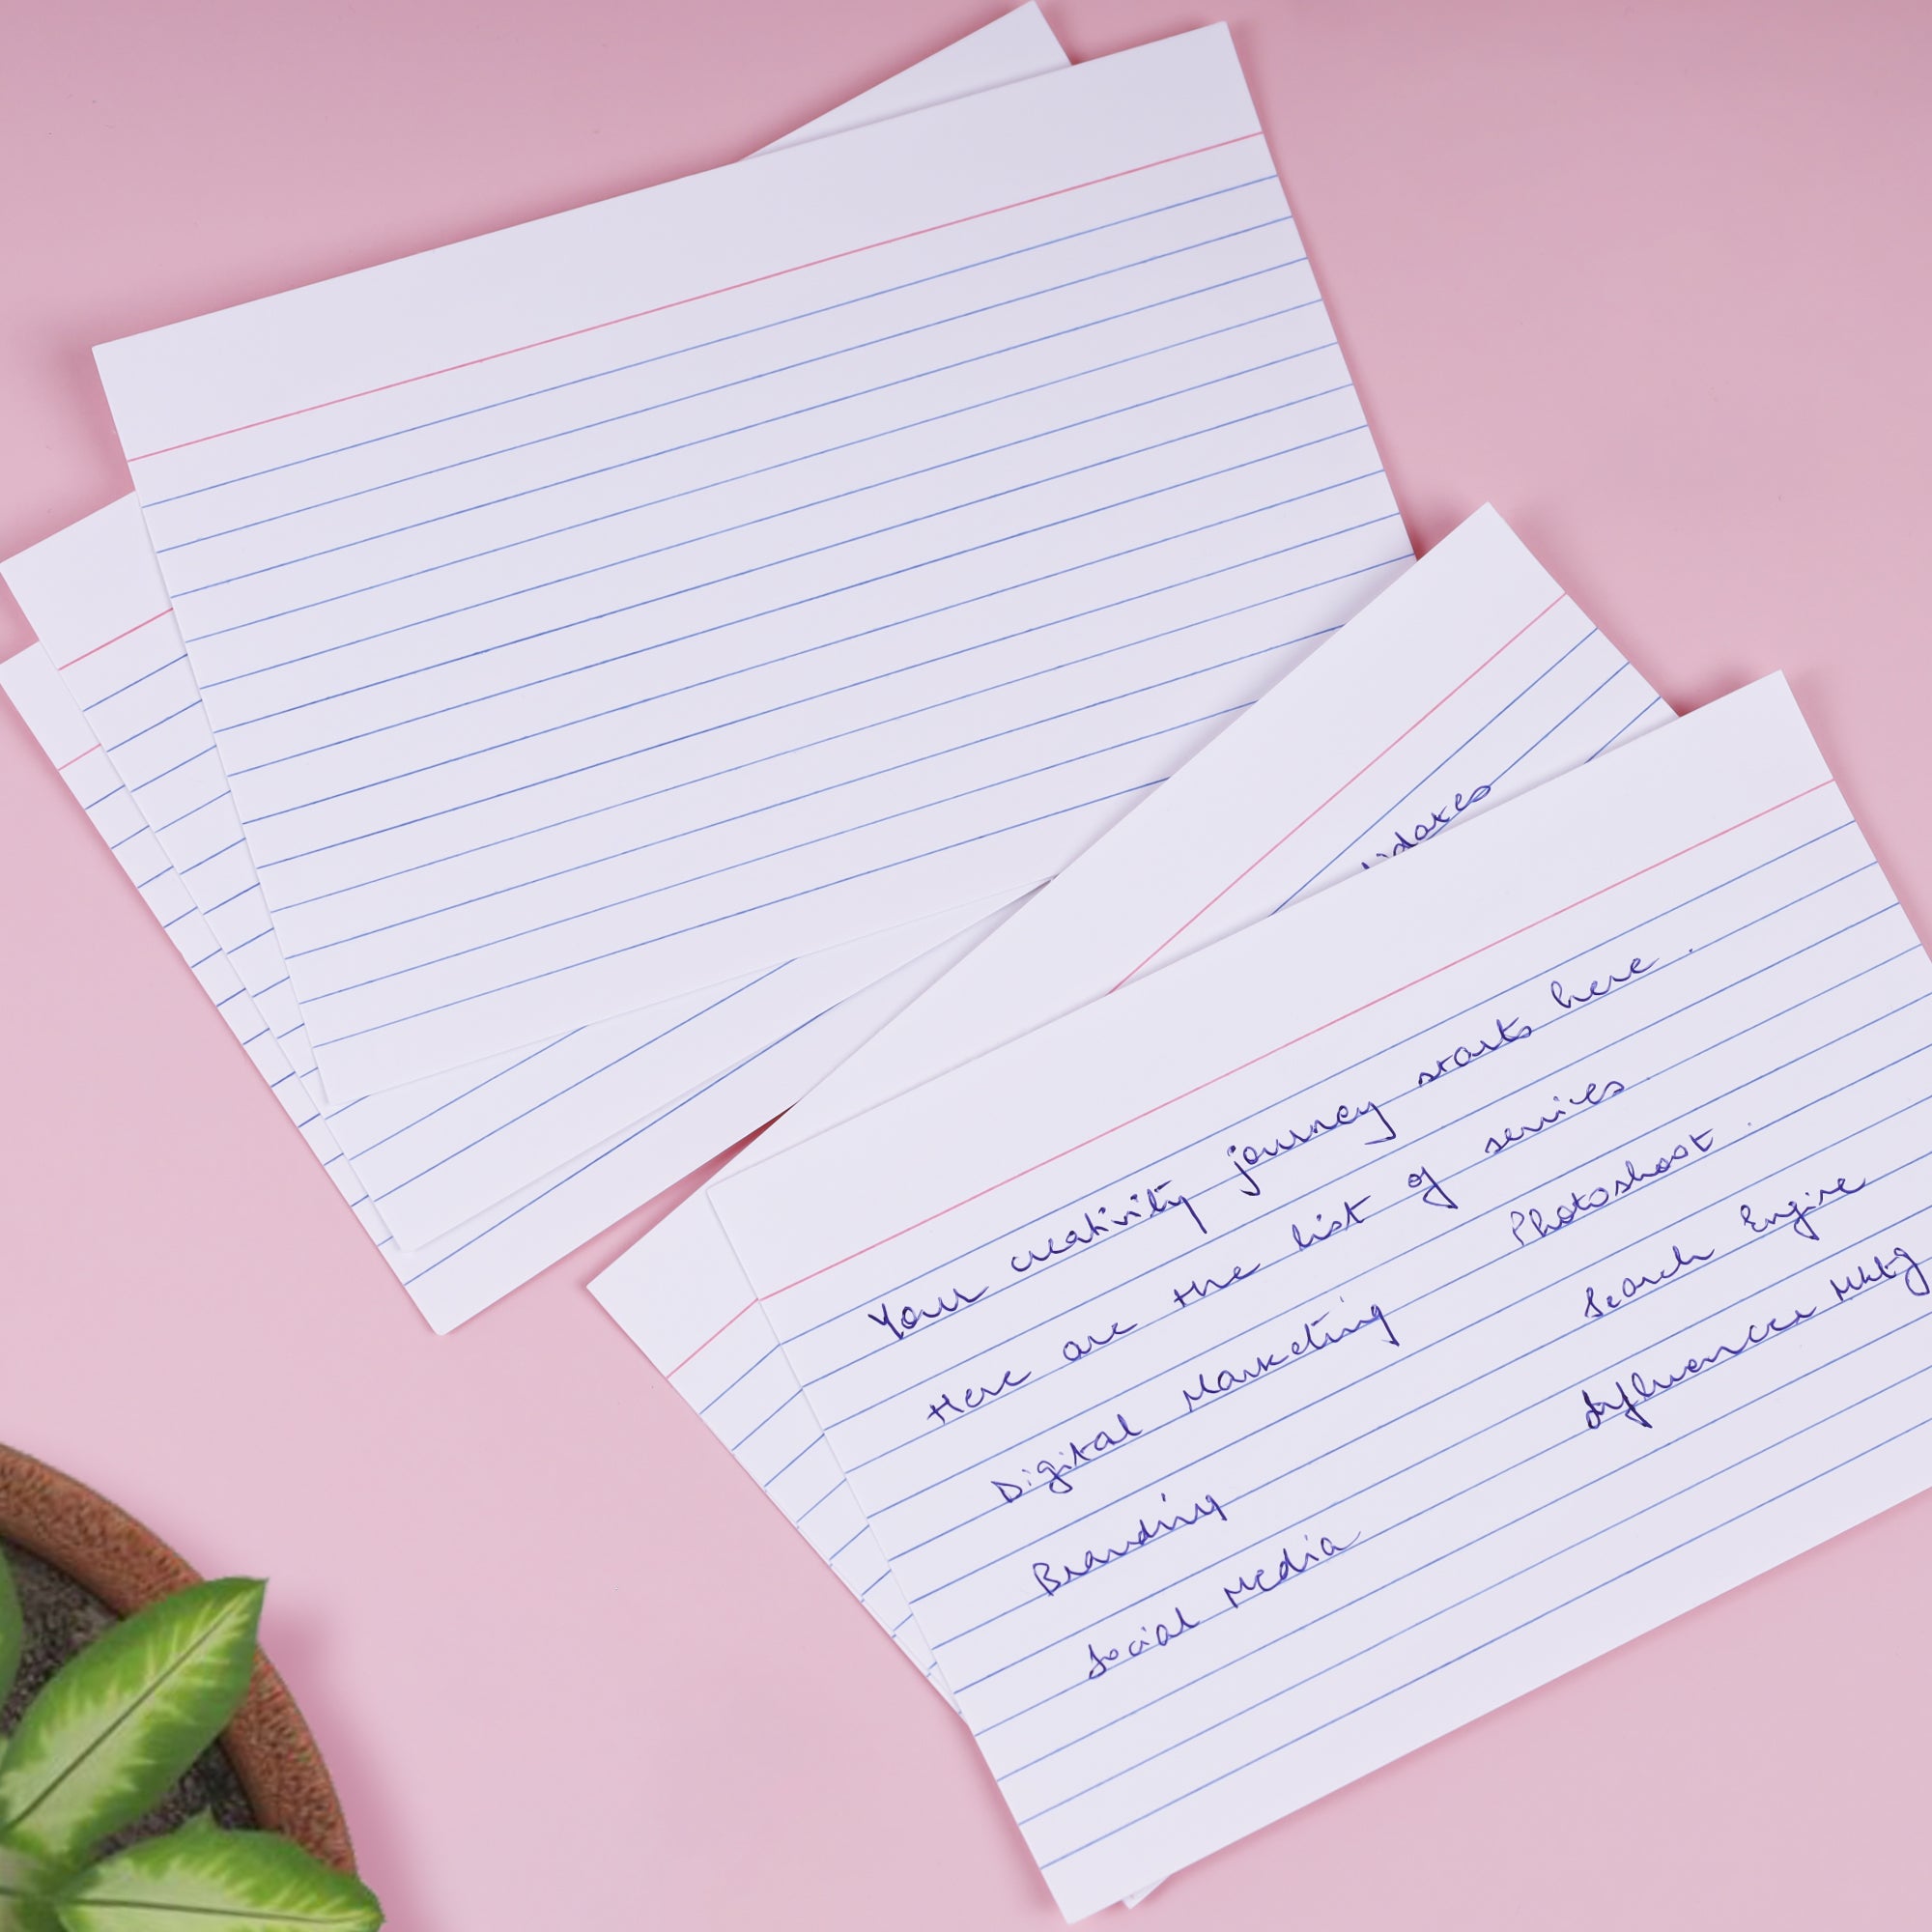 Your creativity journey starts here.
Here are the list of services.
Digital Marketing Photoshoot.
Branding Search Engine
Social Media Influencer Mktg